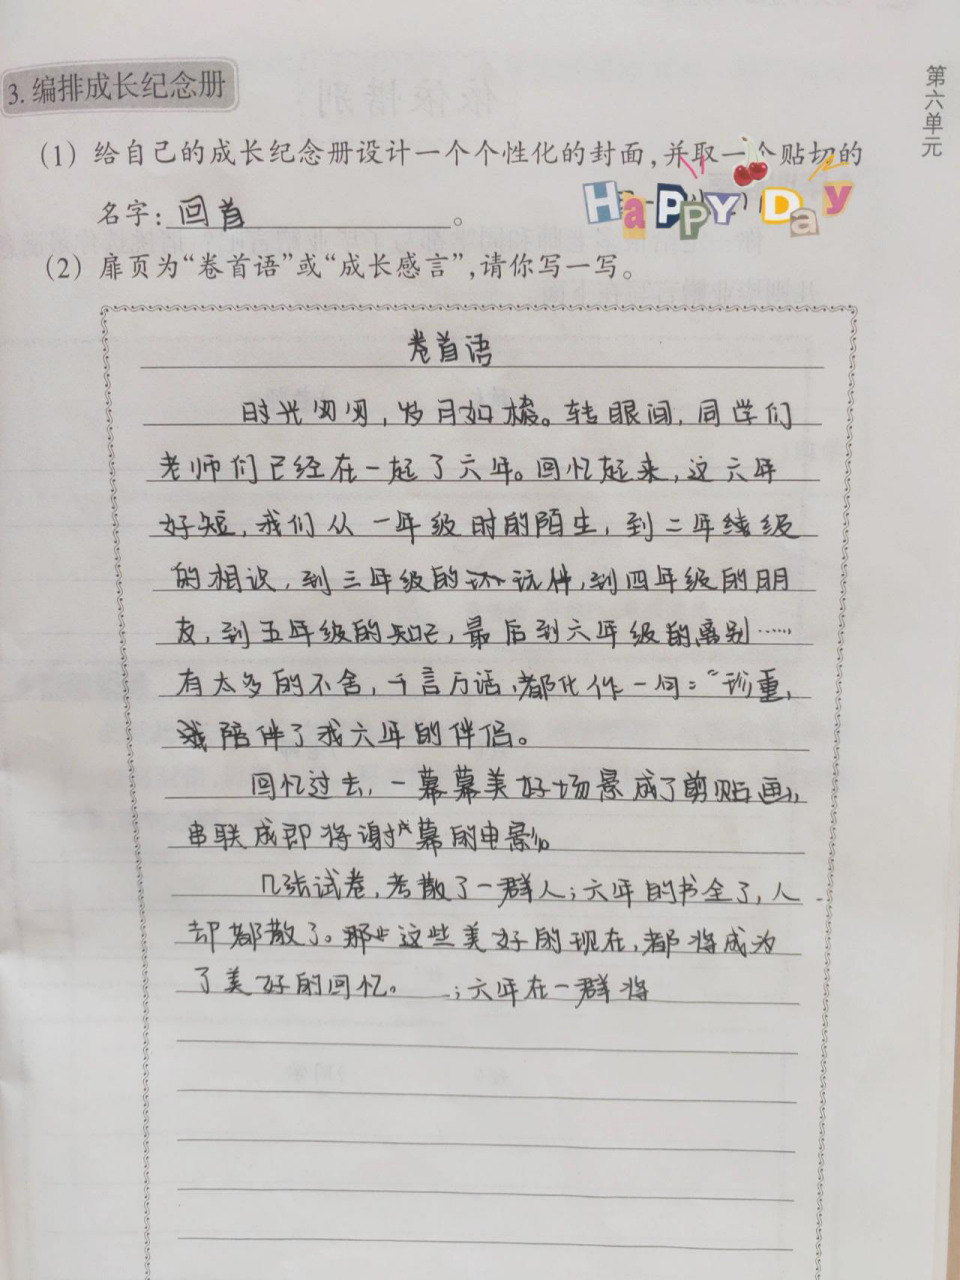 3. 编排成长纪念册
第六单元
(1) 给自己的成长纪念册设计一个个性化的封面,并取一个贴切的
名字: 回首 。
HaPPY Day
(2) 扉页为“卷首语”或“成长感言”,请你写一写。
卷首语
时光匆匆,岁月如梭。转眼间,同学们
老师们已经在一起了六年。回忆起来,这六年
好短,我们从一年级时的陌生,到二年级
的相识,到三年级的玩伴,到四年级的朋
友,到五年级的知己,最后到六年级的离别……
有太多的不舍,千言万语,都化作一句:“珍重,
陪伴了我六年的伴侣。
回忆过去,一幕幕美好场景成了剪贴画,
串联成即将谢幕的电影。
几张试卷,考散了一群人;六年的书全了,人
却都散了。那些这些美好的现在,都将成为
了美好的回忆。 ;六年在一群将